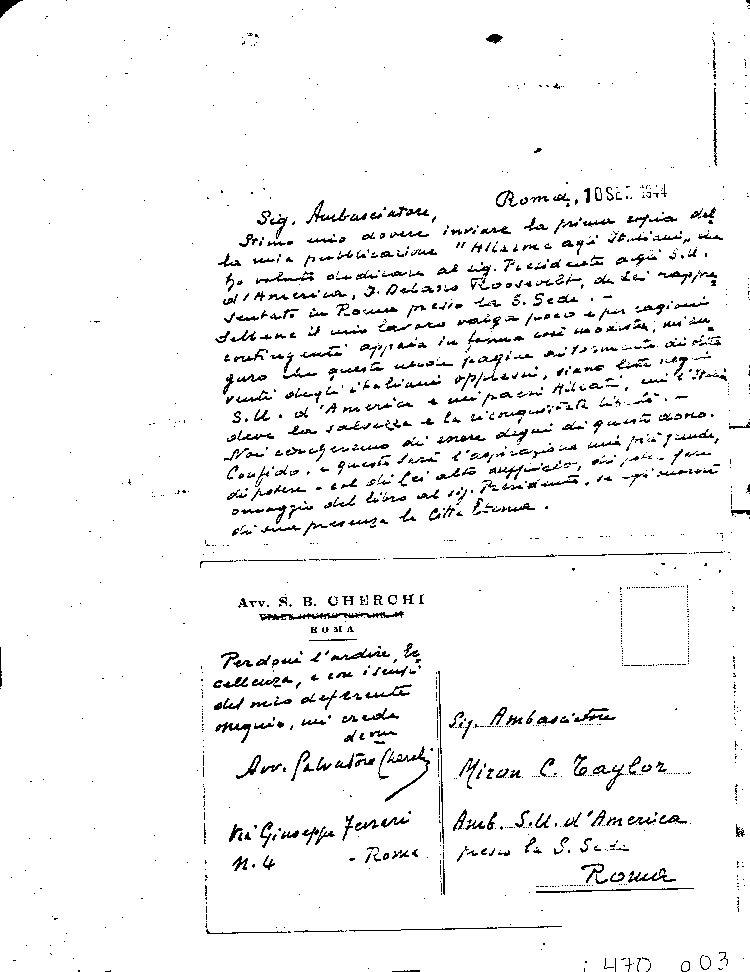 Roma, 10 SET. 1944
Sig. Ambasciatore,
Stimo mio dovere inviare la prima copia del
la mia pubblicazione "Allarme agli Italiani", che
ho voluto dedicare al sig. Presidente agli S.U.
d'America, F. Delano Roosevelt, da Lei rappre
sentato in Roma presso la S. Sede. -
Sebbene il mio lavoro valga poco e per ragioni
contingenti appaia in forma così modesta, mi au
guro che queste pagine
degli italiani oppressi, siano lette negli
S.U. d'America e nei paesi Alleati, cui l'Italia
deve la salvezza e la riconquistata libertà. -
Noi di essere degni di questo dono.
Confido, e questa sarà l'aspirazione mia più grande,
di potere - col di Lei alto appoggio, di poter fare
omaggio del libro al sig. Presidente, se egli onorerà
di sua presenza la Città Eterna.
Avv. S. B. CHERCHI
ROMA
Perdoni l'ardire, Ec
cellenza, e con i sensi
del mio deferente
ossequio, mi creda
devmo
Avv. Salvatore Cherchi
Via Giuseppe Ferrari
N. 4 - Roma
Sig. Ambasciatore
Miron C. Taylor
Amb. S.U. d'America
presso la S. Sede
Roma
470 003